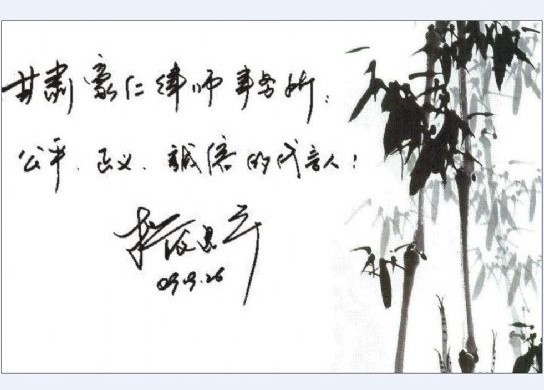 甘肃豪仁律师事务所：
公平、正义、誠信的代言人！
09.9.26